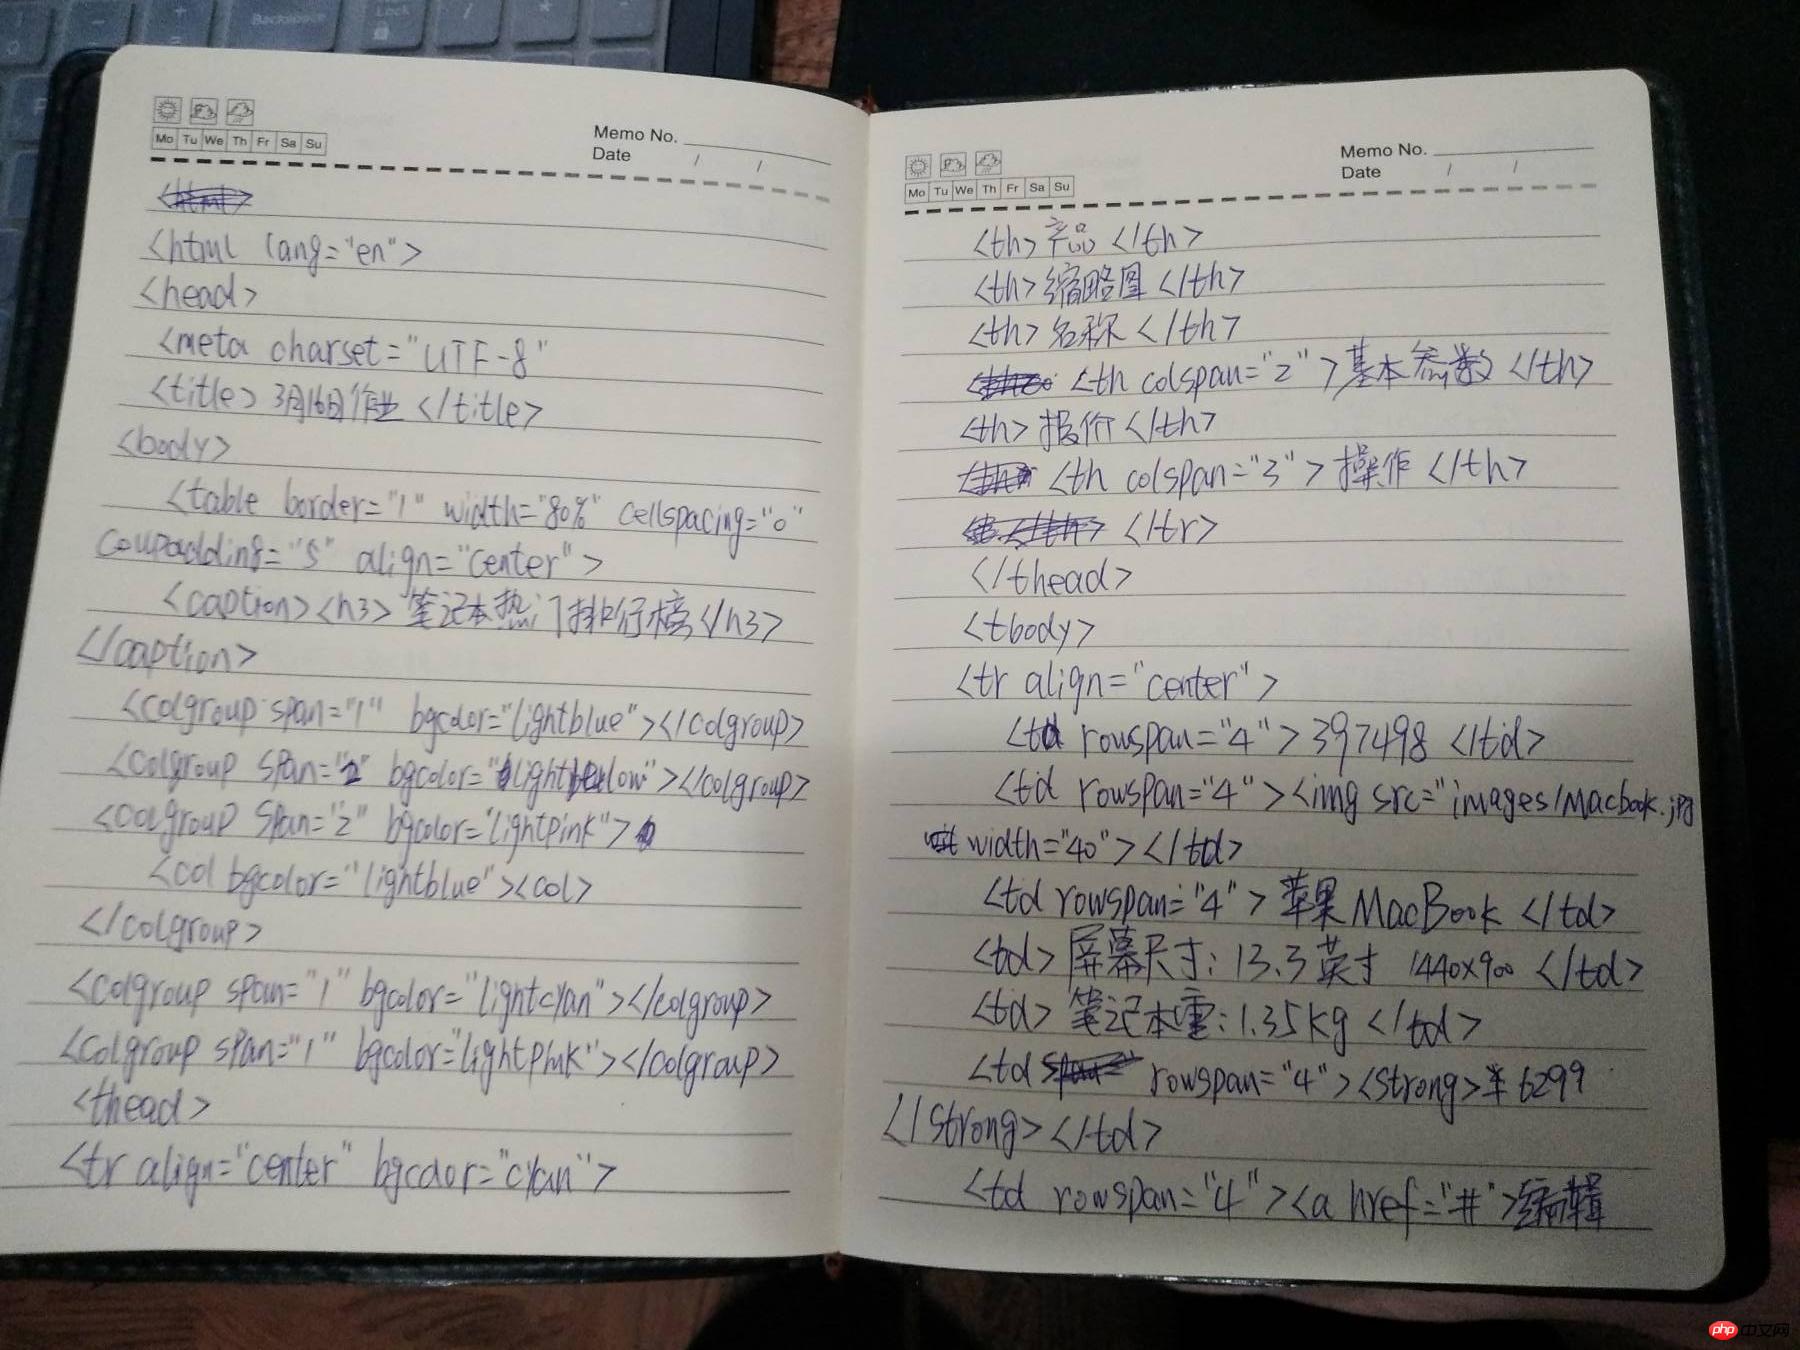 Backspace
Lock
Mo Tu We Th Fr Sa Su
Memo No.
Date / /
<html lang="en">
<head>
<meta charset="UTF-8"
<title>3月16日作业</title>
<body>
<table border="1" width="80%" cellspacing="0"
align="center">
<caption><h3>笔记本热门排行榜</h3>
</caption>
<colgroup span="1" bgcolor="lightblue"></colgroup>
<colgroup span="2" bgcolor="></colgroup>
<colgroup span="2" bgcolor="lightpink">
<col bgcolor="lightblue"><col>
</colgroup>
<colgroup span="1" bgcolor="lightcyan"></colgroup>
<colgroup span="1" bgcolor="lightpink"></colgroup>
<thead>
<tr align="center" bgcolor="cyan">
Mo Tu We Th Fr Sa Su
Memo No.
Date / /
<th>产品</th>
<th>缩略图</th>
<th>名称</th>
<th colspan="2">基本参数</th>
<th>报价</th>
<th colspan="3">操作</th>
</tr>
</thead>
<tbody>
<tr align="center">
<td rowspan="4">397498</td>
<td rowspan="4"><img src="images/Macbook.jpg
width="40"></td>
<td rowspan="4">苹果MacBook</td>
<td>屏幕尺寸:13.3英寸 1440x900</td>
<td>笔记本重:1.35kg</td>
<td rowspan="4"><strong>¥6299
</strong></td>
<td rowspan="4"><a href="#">编辑
php中文网